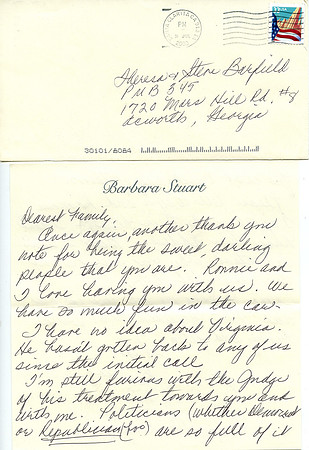 SANTA CLARITA CA
PM
2002
USA
Theresa & Steve Barfield
PMB 345
1720 Mars Hill Rd. #8
Acworth, Georgia
30101/8084
Barbara Stuart
Dearest Family,
Once again, another thank you
note for being the sweet, darling
people that you are. Ronnie and
I love having you with us. We
have so much fun in the car.
I have no idea about Virginia.
He hasn't gotten back to any of us
since the initial call.
I'm still furious with the Judge
of his treatment towards you and
with me. Politicians (whether Democrat
or Republican (too) are so full of it